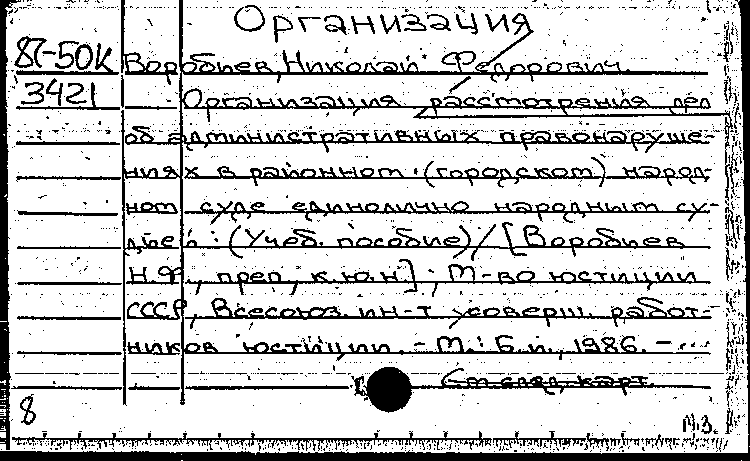 Организация
87-50К Воробьев, Николай Федорович.
3421 Организация рассмотрения дел
об административных правонаруше-
ниях в районном (городском) народ-
ном суде единолично народным су-
дьей: (Учеб. пособие)/[Воробьев
Н.Ф., преп., к.ю.н]; М-во юстиции
СССР, Всесоюз. ин-т усоверш. работ-
ников юстиции. - М.: Б.и., 1986. - ...
См след. карт.
8
М.З.